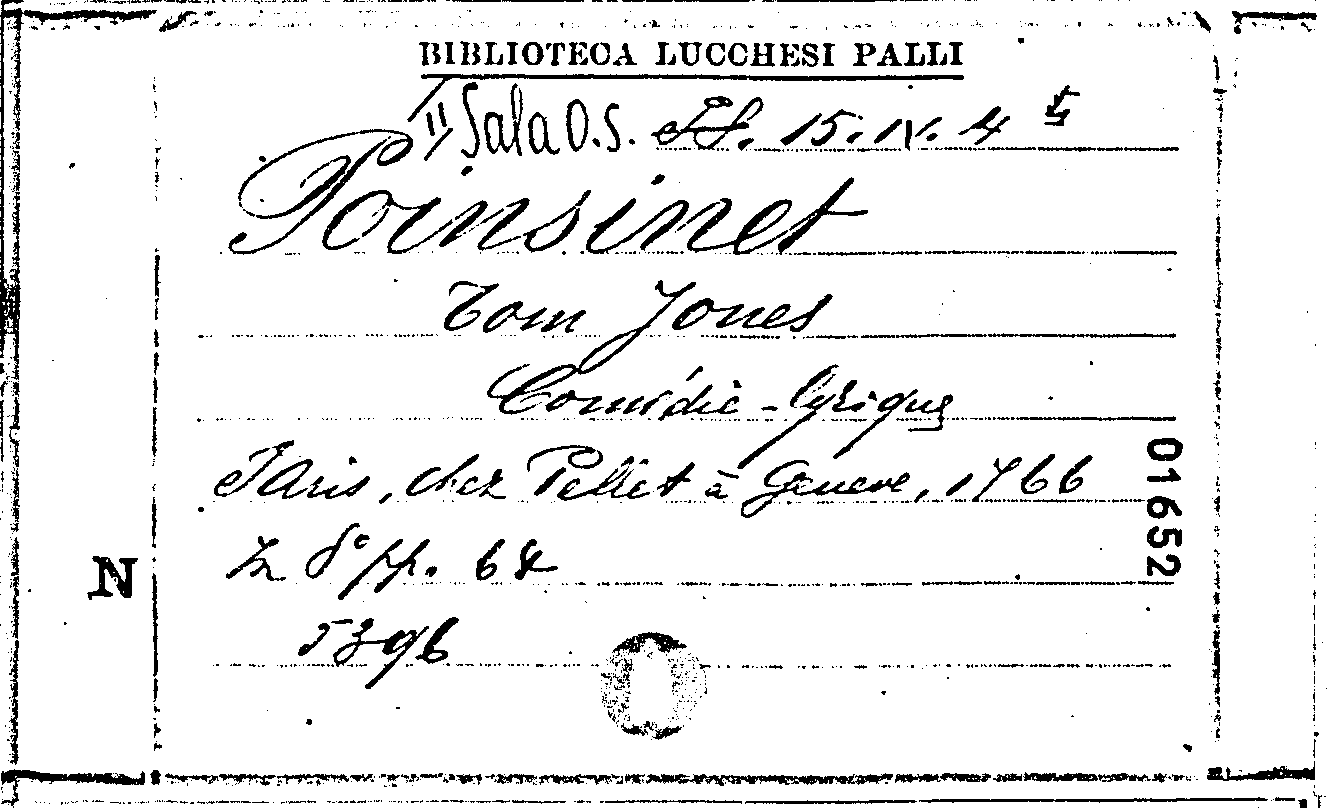 BIBLIOTECA LUCCHESI PALLI
II Sala O.S. 15. IV. 4 5
Poinsinet
Tom Jones
Comédie-lyrique
Paris, chez Pellet à Geneve, 1766
In 8° pp. 64
5396
01652
N